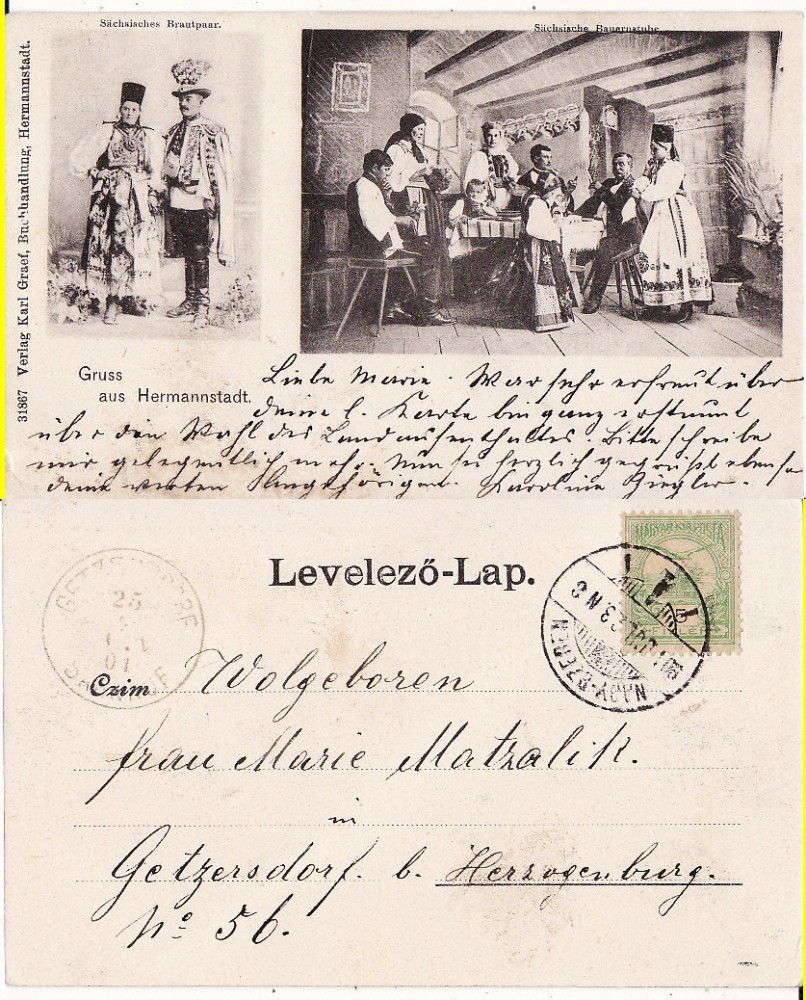 Sächsisches Brautpaar.
Sächsische Bauernstube.
31867 Verlag Karl Graef, Buchhandlung, Hermannstadt.
Gruss
aus Hermannstadt.
Liebe Marie. War sehr erfreut über
deine l. Karte bin ganz erstaunt
über den Wahl des Landaufenthaltes. Bitte schreibe
mir gelegentlich mehr. Nun sei herzlich gegrüßt ebenso
deine werten Angehörigen. Karoline Ziegler.
Levelező-Lap.
MAGYAR KIR. POSTA
5
FILLÉR
NAGY-SZEBEN
GETZERSDORF
25
01
Czim Wolgeboren
frau Marie Matzalik.
in
Getzersdorf. b. Herzogenburg.
No 56.